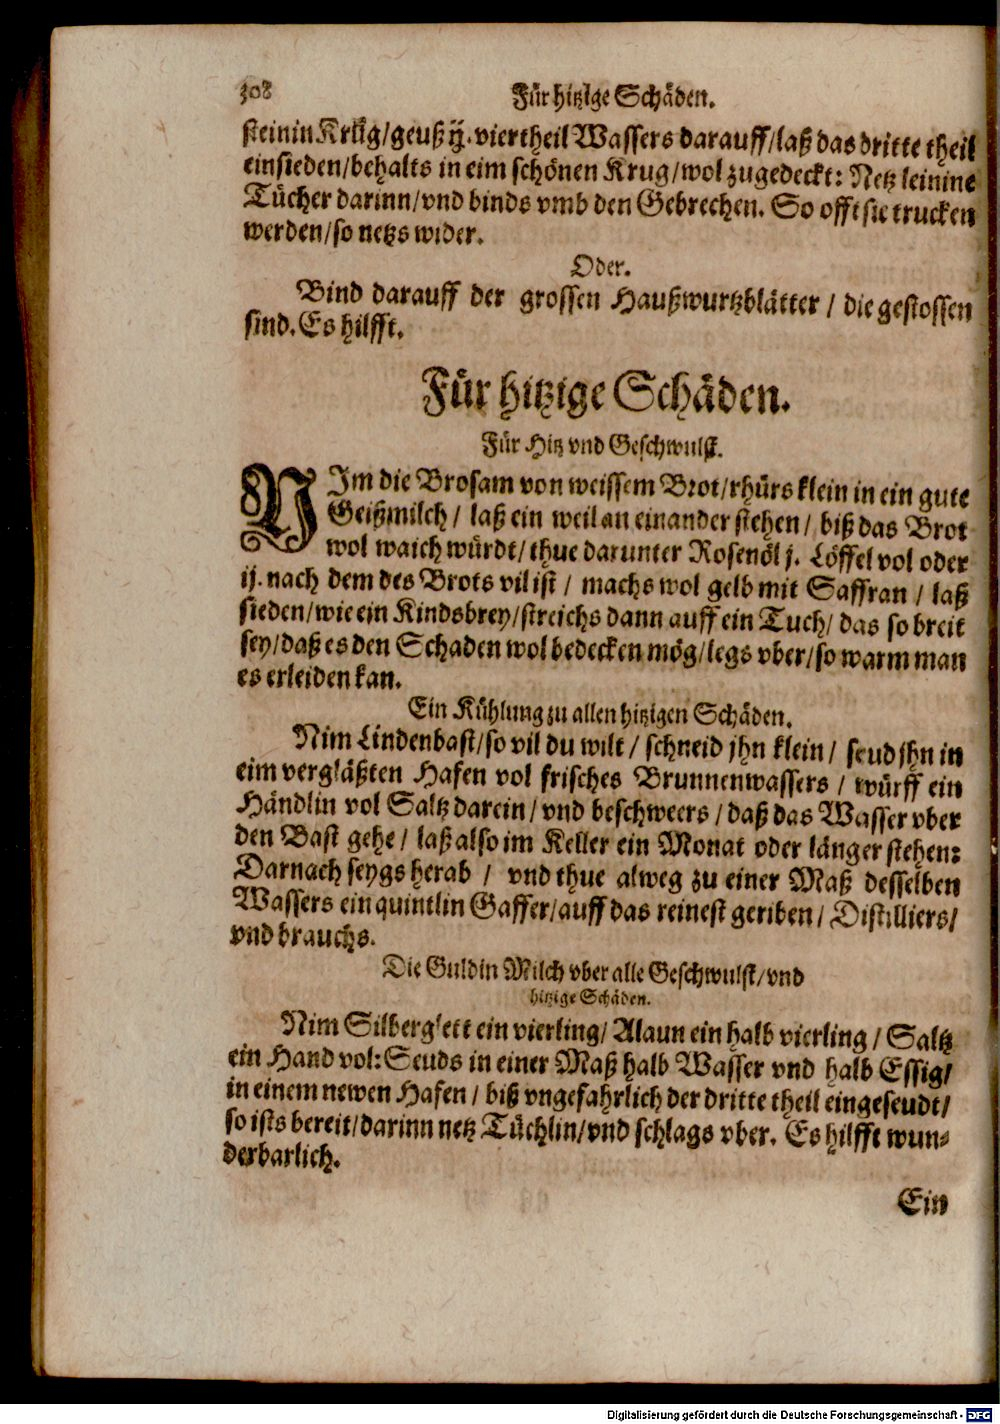 308
Für hitzige Schäden.
steinin Krüg/geuß ij. viertheil Wassers darauff/laß das dritte theil
einsieden/behalts in eim schönen Krug/wol zugedeckt: Netz leinine
Tücher darinn/vnd binds vmb den Gebrechen. So offt sie trucken
werden/so netzs wider.
Oder.
Bind darauff der grossen Haußwurtzblätter / die gestossen
sind. Es hilfft.
Für hitzige Schäden.
Für Hitz vnd Geschwulst.
NIm die Brosam von weissem Brot/rhürs klein in ein gute
Geißmilch / laß ein weil an einander stehen / biß das Brot
wol waich würdt/ thue darunter Rosenöl j. Löffel vol oder
ij. nach dem des Brots vil ist / machs wol gelb mit Saffran / laß
sieden/wie ein Kindsbrey/streichs dann auff ein Tuch/ das so breit
sey/daß es den Schaden wol bedecken mög/legs vber/so warm man
es erleiden kan.
Ein Kühlung zu allen hitzigen Schäden.
Nim Lindenbast/so vil du wilt / schneid jhn klein / seud jhn in
eim vergläßten Hafen vol frisches Brunnenwassers / würff ein
Händlin vol Saltz darein/ vnd beschweers / daß das Wasser vber
den Bast gehe / laß also im Keller ein Monat oder länger stehen:
Darnach seygs herab / vnd thue alweg zu einer Maß desselben
Wassers ein quintlin Gaffer/auff das reinest geriben/ Distilliers/
vnd brauchs.
Die Guldin Milch vber alle Geschwulst/vnd
hitzige Schäden.
Nim Silberglett ein vierling/ Alaun ein halb vierling / Saltz
ein Hand vol: Seuds in einer Maß halb Wasser vnd halb Essig/
in einem newen Hafen / biß vngefahrlich der dritte theil eingeseudt/
so ists bereit/darinn netz Tüchlin/vnd schlags vber. Es hilfft wun-
derbarlich.
Ein
Digitalisierung gefördert durch die Deutsche Forschungsgemeinschaft - DFG